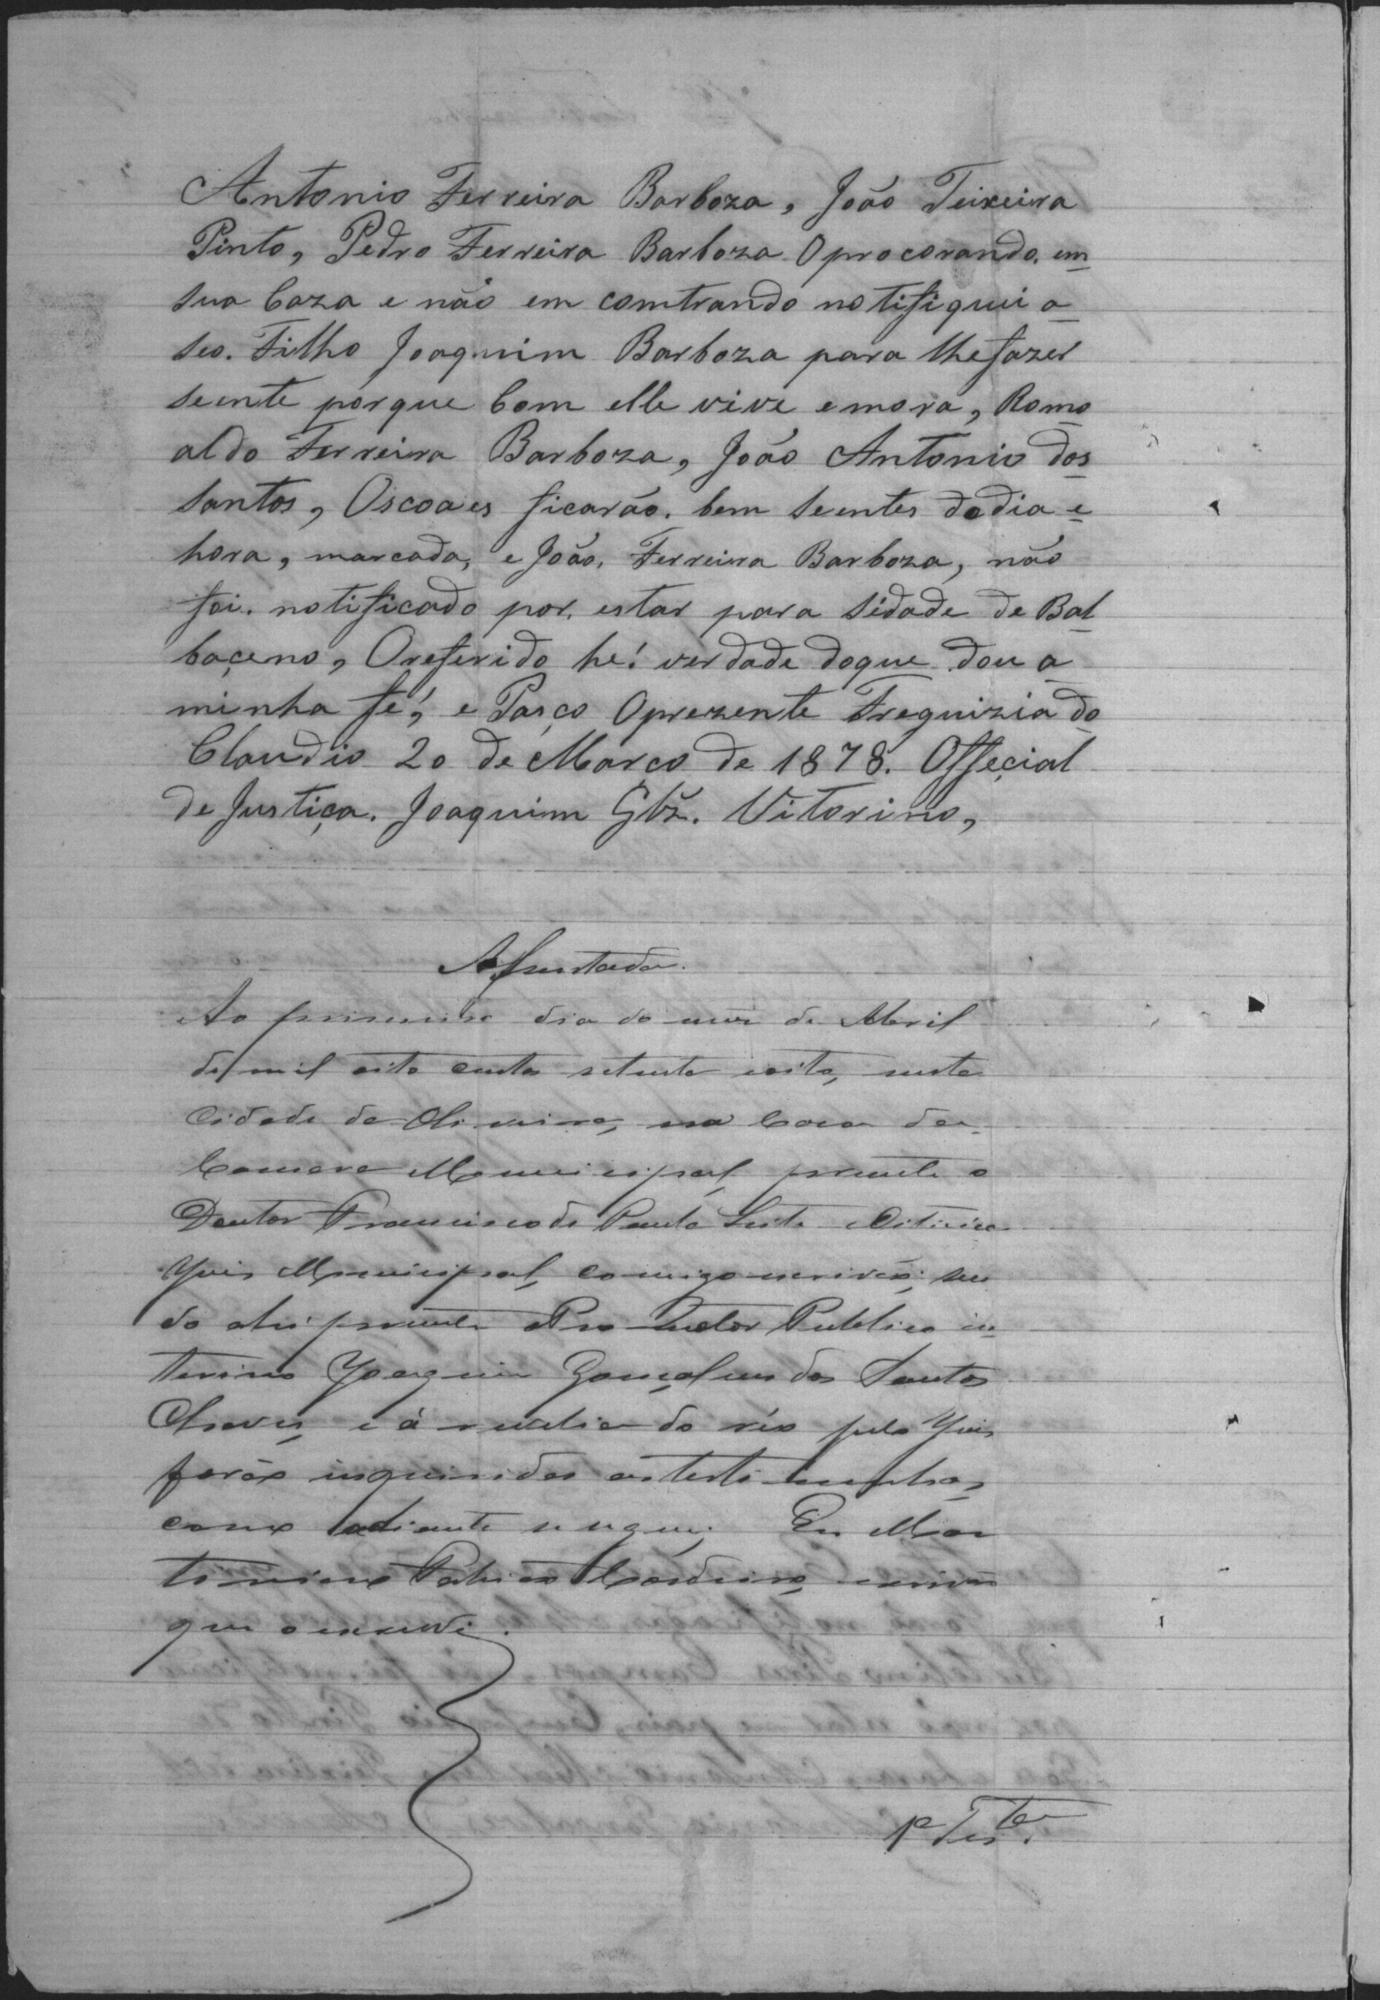 Antonio Ferreira Barboza, João Teixeira
Pinto, Pedro Ferreira Barboza Oprocorando. em
sua Caza e não em comtrando notifiqui a
seo. Filho Joaquim Barboza para lhefazer
seente porque Com elle vive emora, Romo
aldo Ferreira Barboza, João Antonio dos
santos, Oscoaes ficarão. bem seentes dodia e
hora, marcada, e João, Ferreira Barboza, não
foi. notificado por. estar para sidade de Bal
baçeno, Oreferido he! verdade doque dou a
minha fé, e Paço Oprezente Freguizia do
Claudio 20 de Março de 1878. Offeçial
de Justiça. Joaquim Glz. Vitorino,
Assentada.
Ao primeiro dia do mez de Abril
de mil oito centos setenta eoito, nesta
Cidade de Oliveira, na Casa da
Camara Municipal, presente o
Doutor Francisco de Paula Leite
Juis Municipal, comigo escrivão, sen
do ahi presente Promotor Publico in
terino Joaquim Gonçalves dos Santos
Chaves, e á revelia do réo pelo Juis
forão inquiridas as testemunhas,
como adiante se segue; Eu Mar
tiniano Cordeiro, escrivão
que o escrevi.
1ª Tes.ta